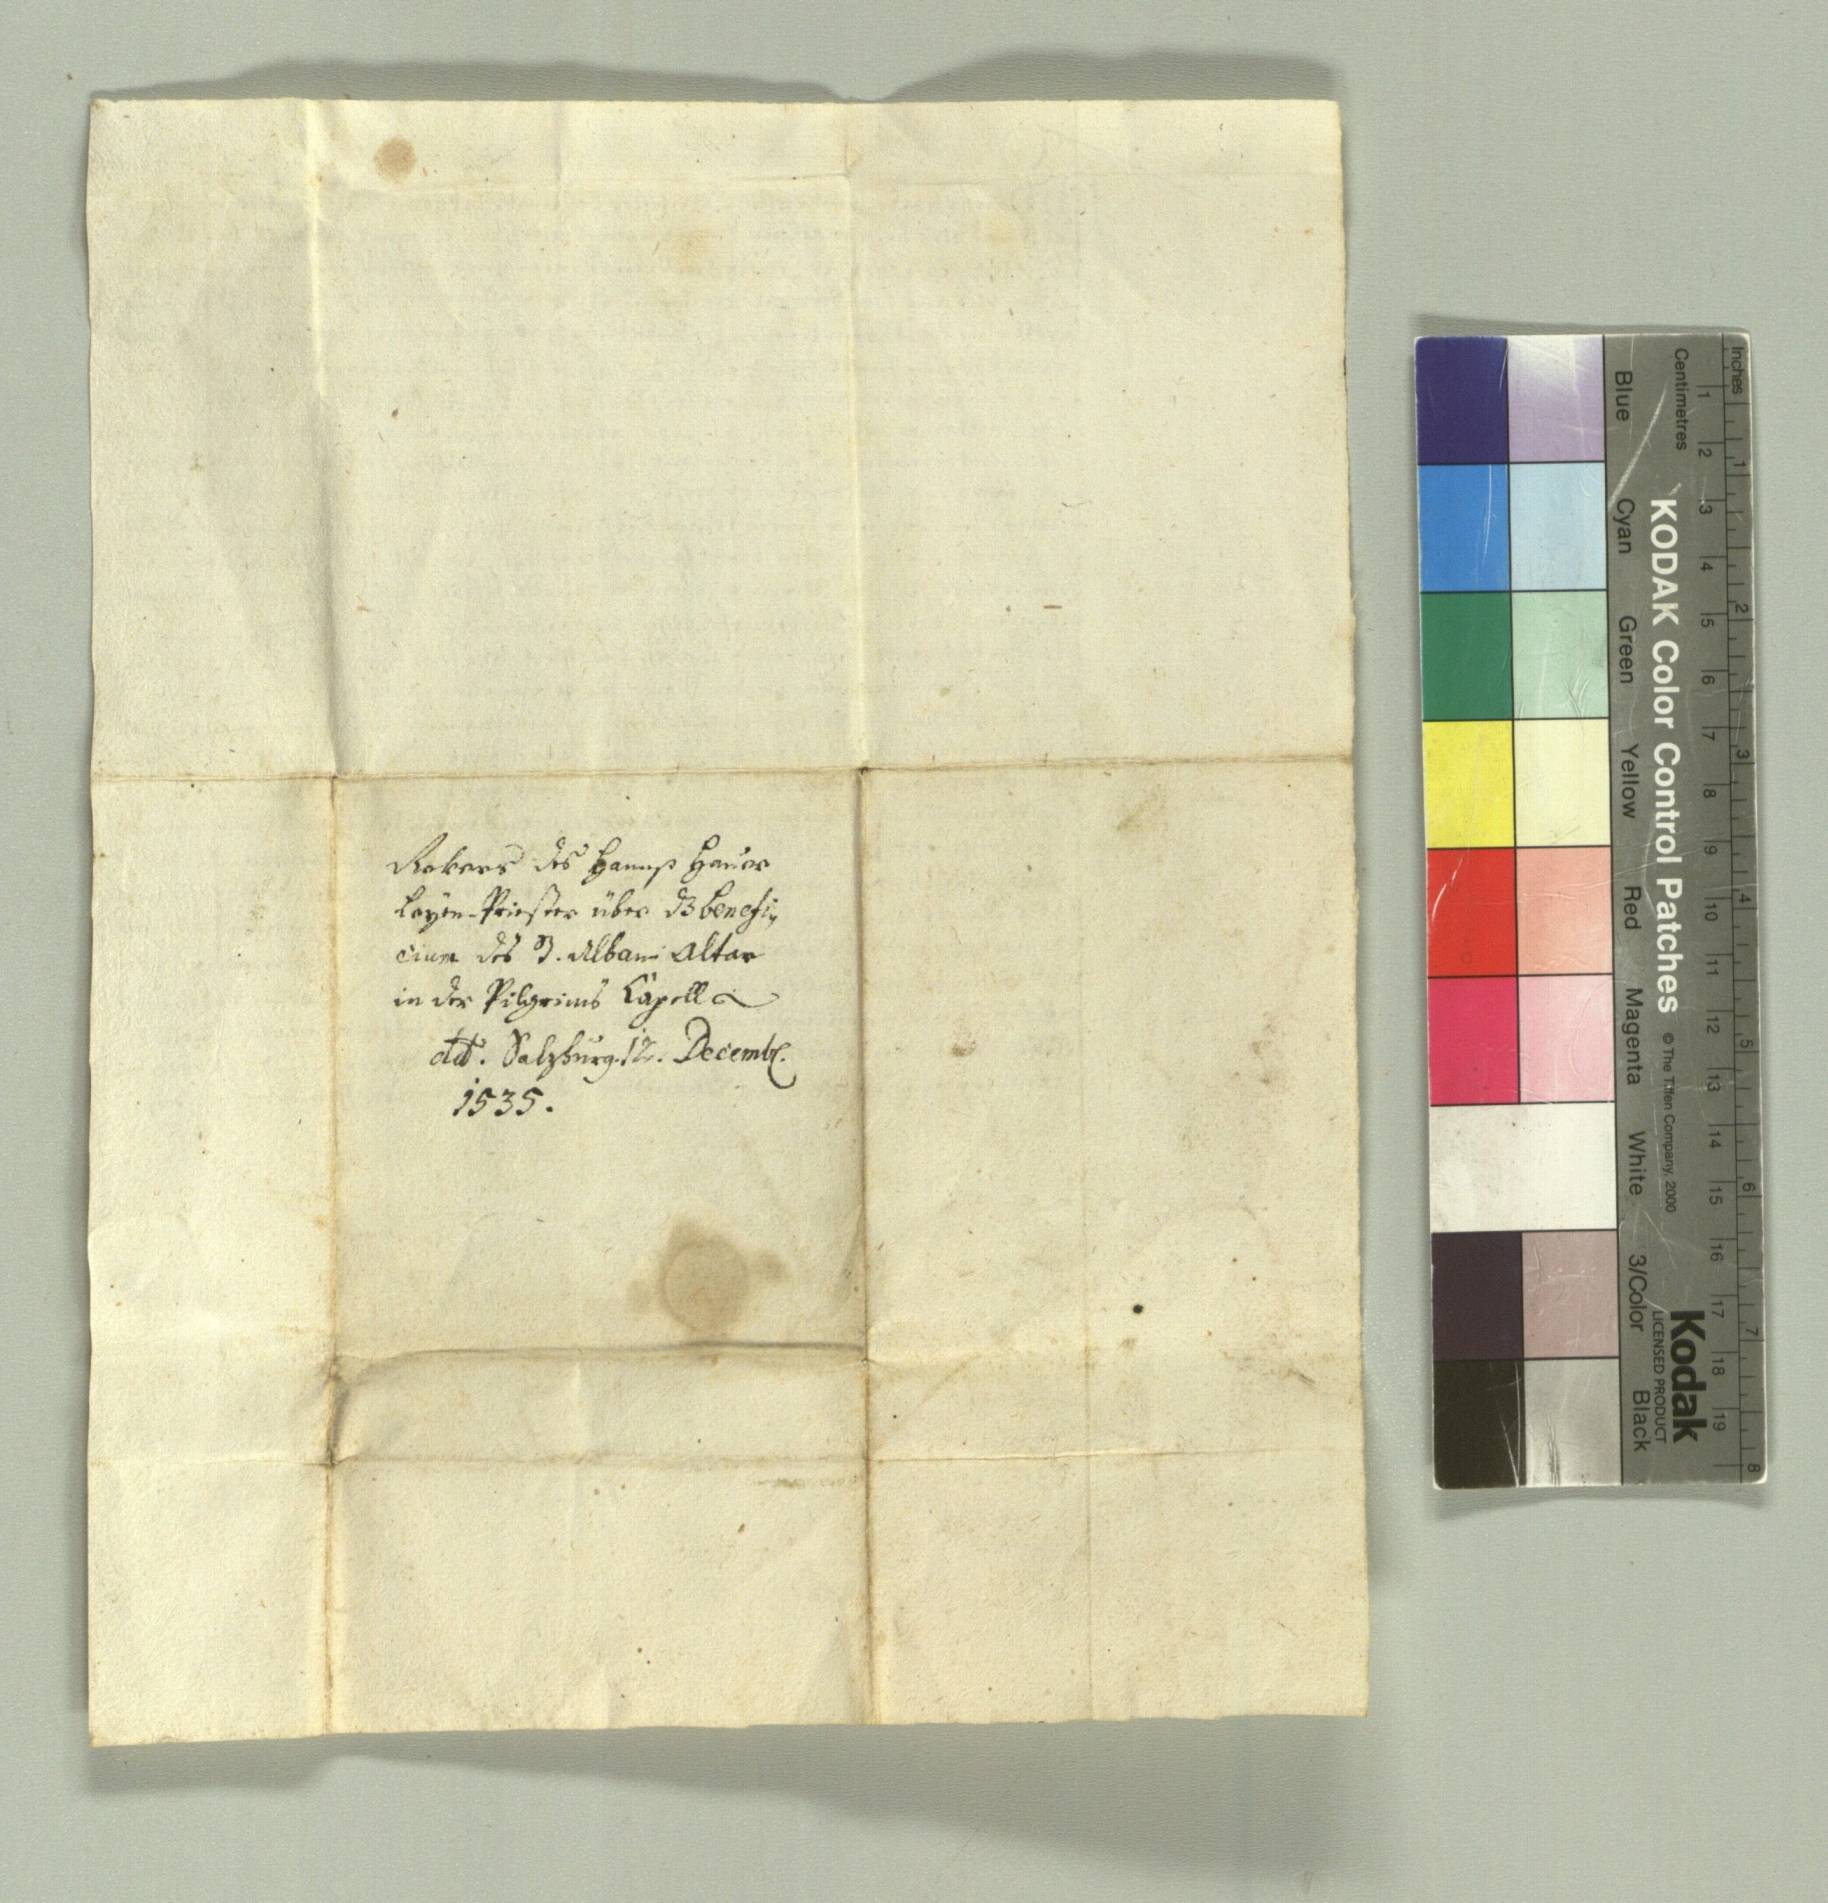 Revers des Hannß Hauer
Layen-Priester über dz benefi,,
cium des S. Albani Altar
in der Pilgrims Capell
dd. Salzburg. 12. Decembr.
1535.
Inches
Centimetres
1 2 3 4 5 6 7 8 9 10 11 12 13 14 15 16 17 18 19
1 2 3 4 5 6 7 8
KODAK Color Control Patches
© The Tiffen Company, 2000
Kodak
LICENSED PRODUCT
Blue Cyan Green Yellow Red Magenta White 3/Color Black